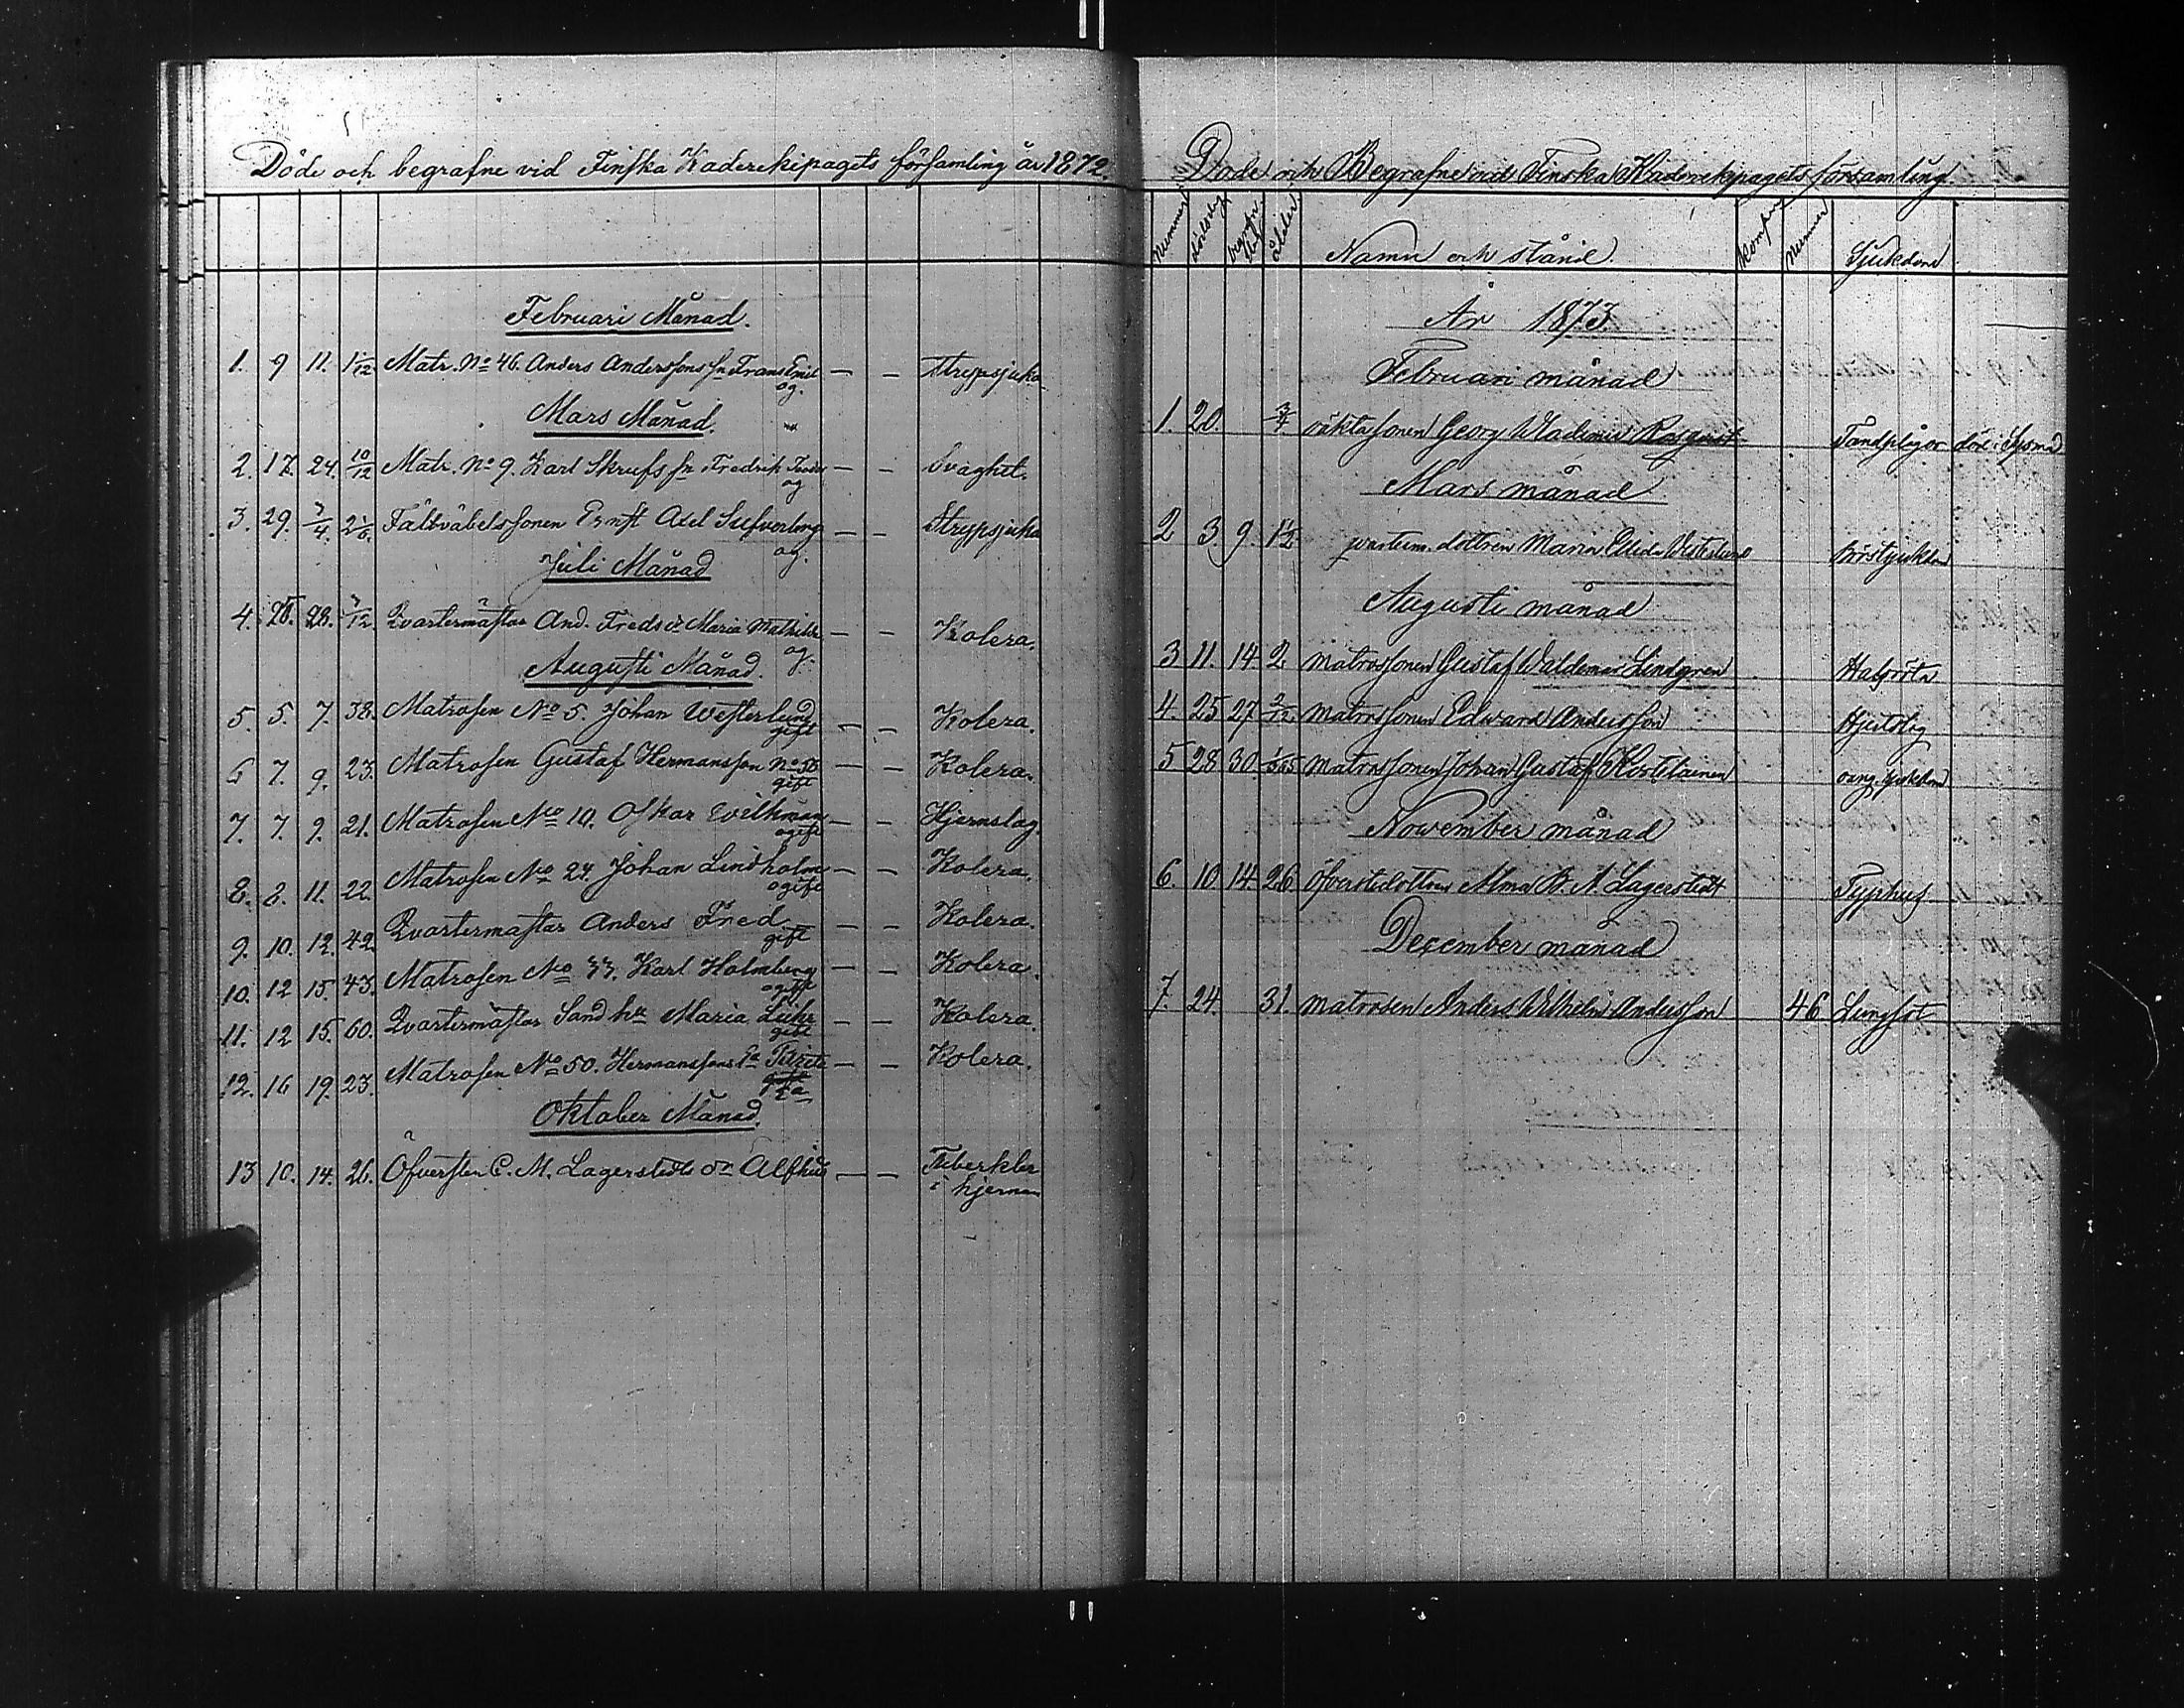 Döde och begrafne vid Finska Kaderekipagets församling år 1872.
Februari Månad.
1. 9 11. 1 1/12 Matr. No 46. Anders Anderssons sn Frans Emil — — Strypsjuka
og.
Mars Månad.
2. 17. 24. 10/12 Matr. No 9. Karl Skrufs sn Fredrik — — Svaghet.
og
3. 29. 3/4. 2 1/6. Fältväbelssonen Ernst Axel — — Strypsjuka
og.
Juli Månad
4. 28. /12. Qvartermästar And. Freds dr Maria Mathilda — — Kolera.
og.
Augusti Månad.
5. 5. 7. 38. Matrosen No 5. Johan Westerlund — — Kolera.
gift
6 7. 9. 23. Matrosen Gustaf Hermansson No 50 — — Kolera.
gift
7. 7. 9. 21. Matrosen No 10. Oskar Wilkman — — Hjernslag.
ogift
8. 8. 11. 22. Matrosen No 24. Johan Lindholm — — Kolera.
ogift
9. 10. 12. 42. Qvartermästar Anders Fred. — — Kolera.
gift
10. 12 15. 43. Matrosen No 33. Karl Holmberg — — Kolera.
ogift
11. 12 15. 60. Qvartermästar Sand hu Maria — — Kolera.
gift
12. 16 19. 23. Matrosen No 50. Hermanssons — — Kolera.
Oktober Månad.
13 10. 14. 26. Öfversten C. M. Lagerstedts dr Alfhild — — Tuberkler
i hjernan
Döde och Begrafne vid Finska Kaderekipagets församling.
Nummer dödsdag begrafn. dag ålder Namn och stånd. Kompani Nummer Sjukdom
År 1873
Februari månad
1. 20. 3/4 väktarsonen Georg Wladimir Tandplågor död i Sysmä
Mars månad
2 3. 9. 1 1/2 qvarterm. dottren Maria Elida Westerlund bröstsjukdom
Augusti månad
3 11. 14. 2 matrossonen Gustaf Waldemar Lindgren Halsröta
4. 25 27 2/12. matrossonen Edward Andersson Hjertslag
5 28 30 1/365 matrossonen Johan Gustaf
November månad
6. 10 14 26 öfverstedottren Alma B. A. Lagerstedt Typhus
December månad
7. 24. 31. matrosen Anders Wilhelm Andersson 46 Lungsot